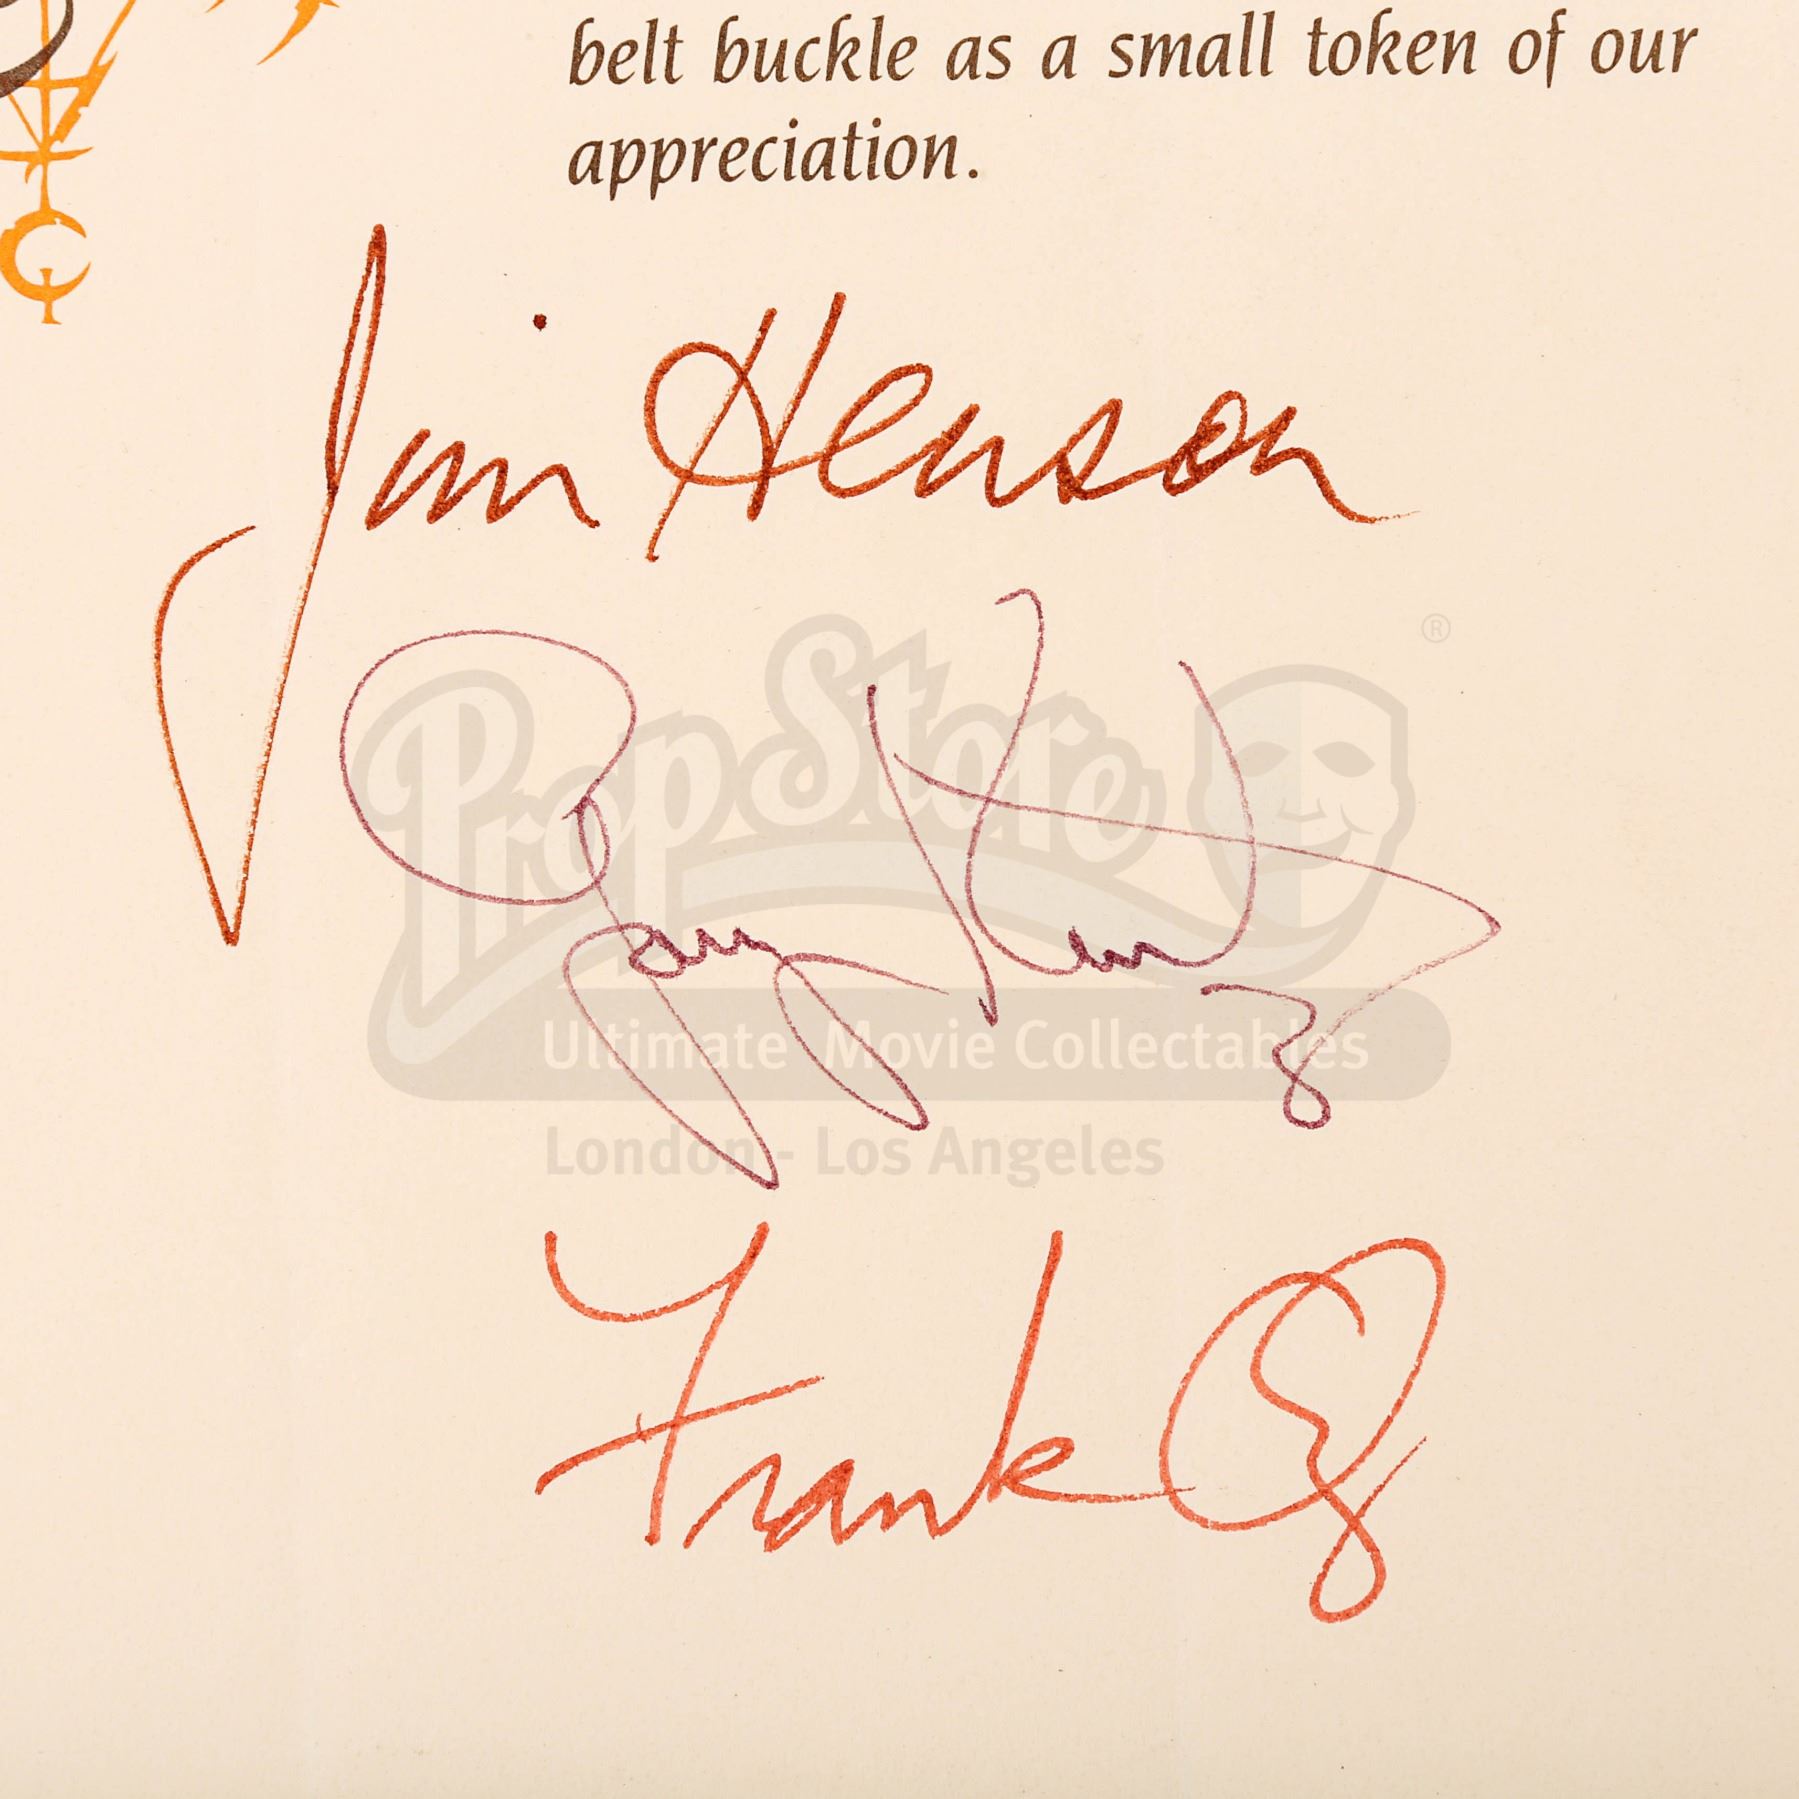 belt buckle as a small token of our
appreciation.
Jim Henson
®
PropStore
Gary Kurtz
Ultimate Movie Collectables
London - Los Angeles
Frank Oz